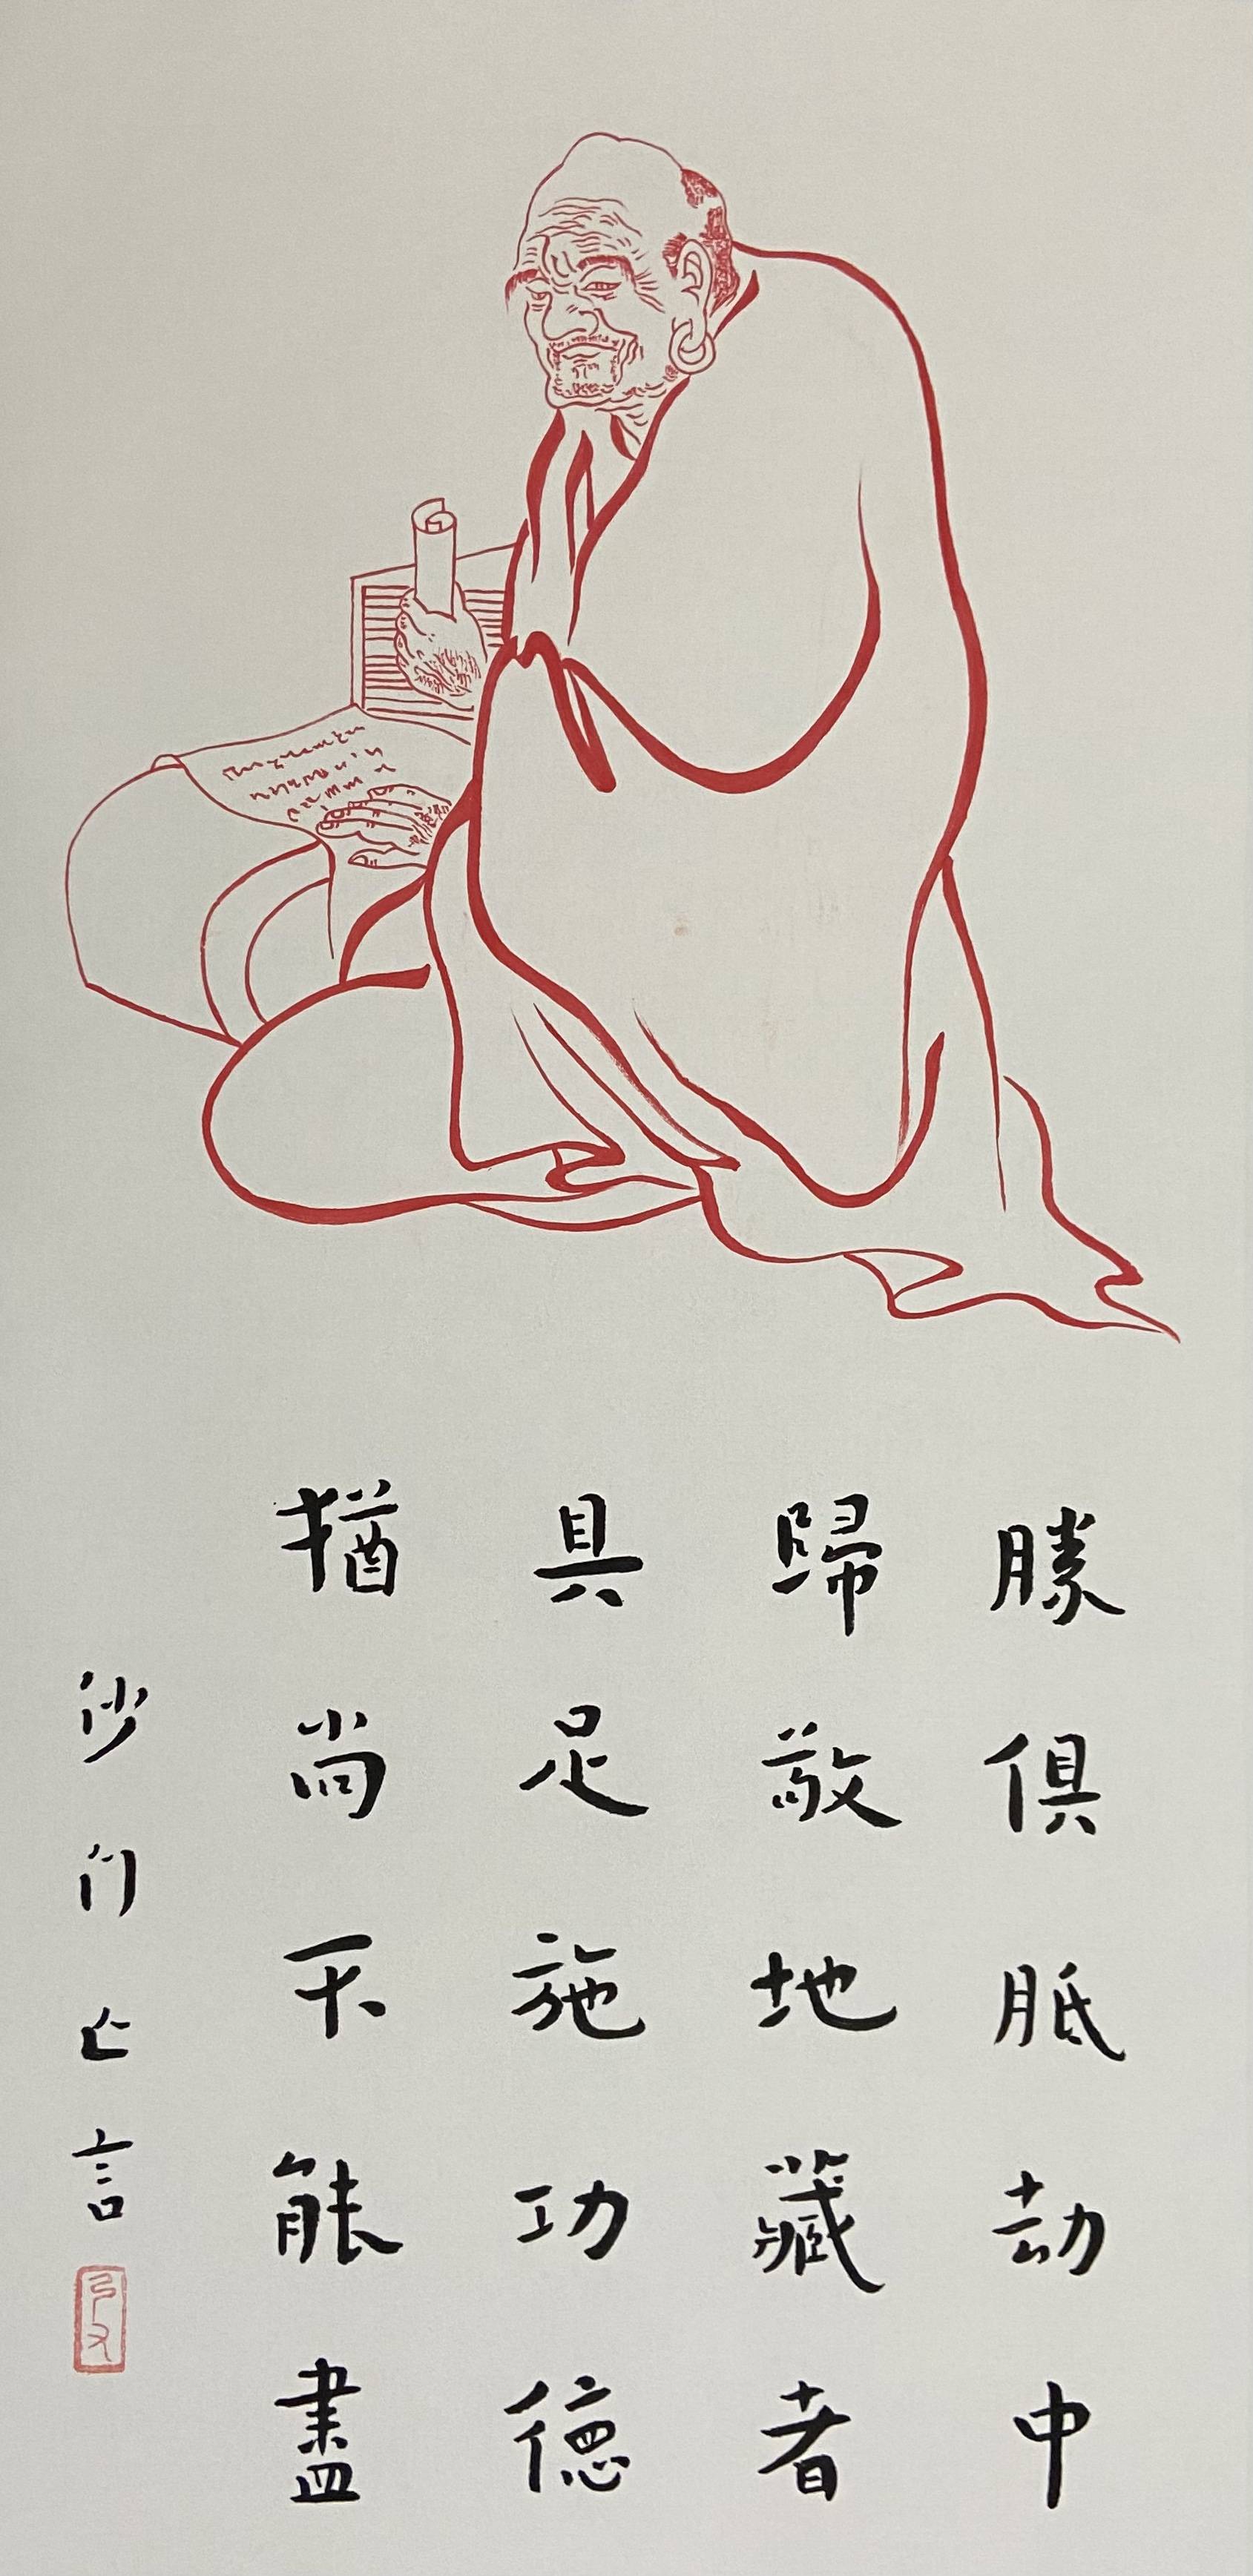 勝俱胝劫中
歸敬地藏者
具足施功德
猶尚不能盡
沙门亡言